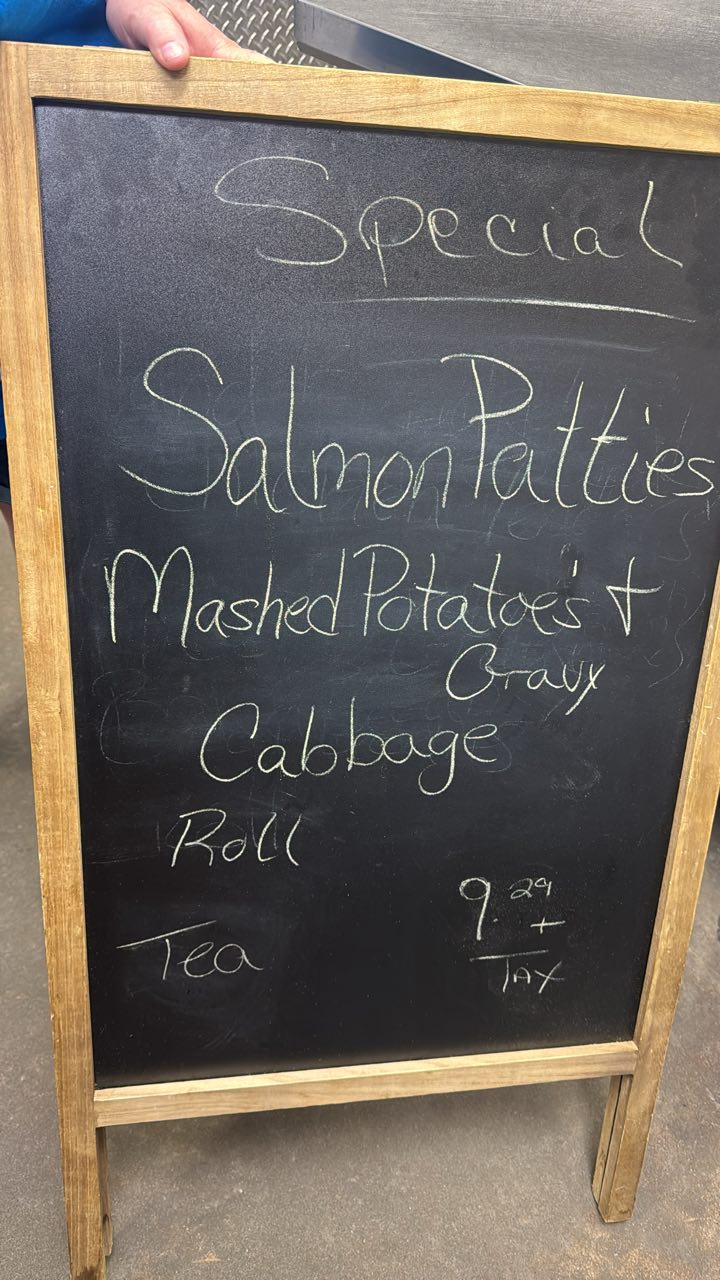 Special
Salmon Patties
Mashed Potatoe's +
Gravy
Cabbage
Roll
9.29 +
Tea
TAX